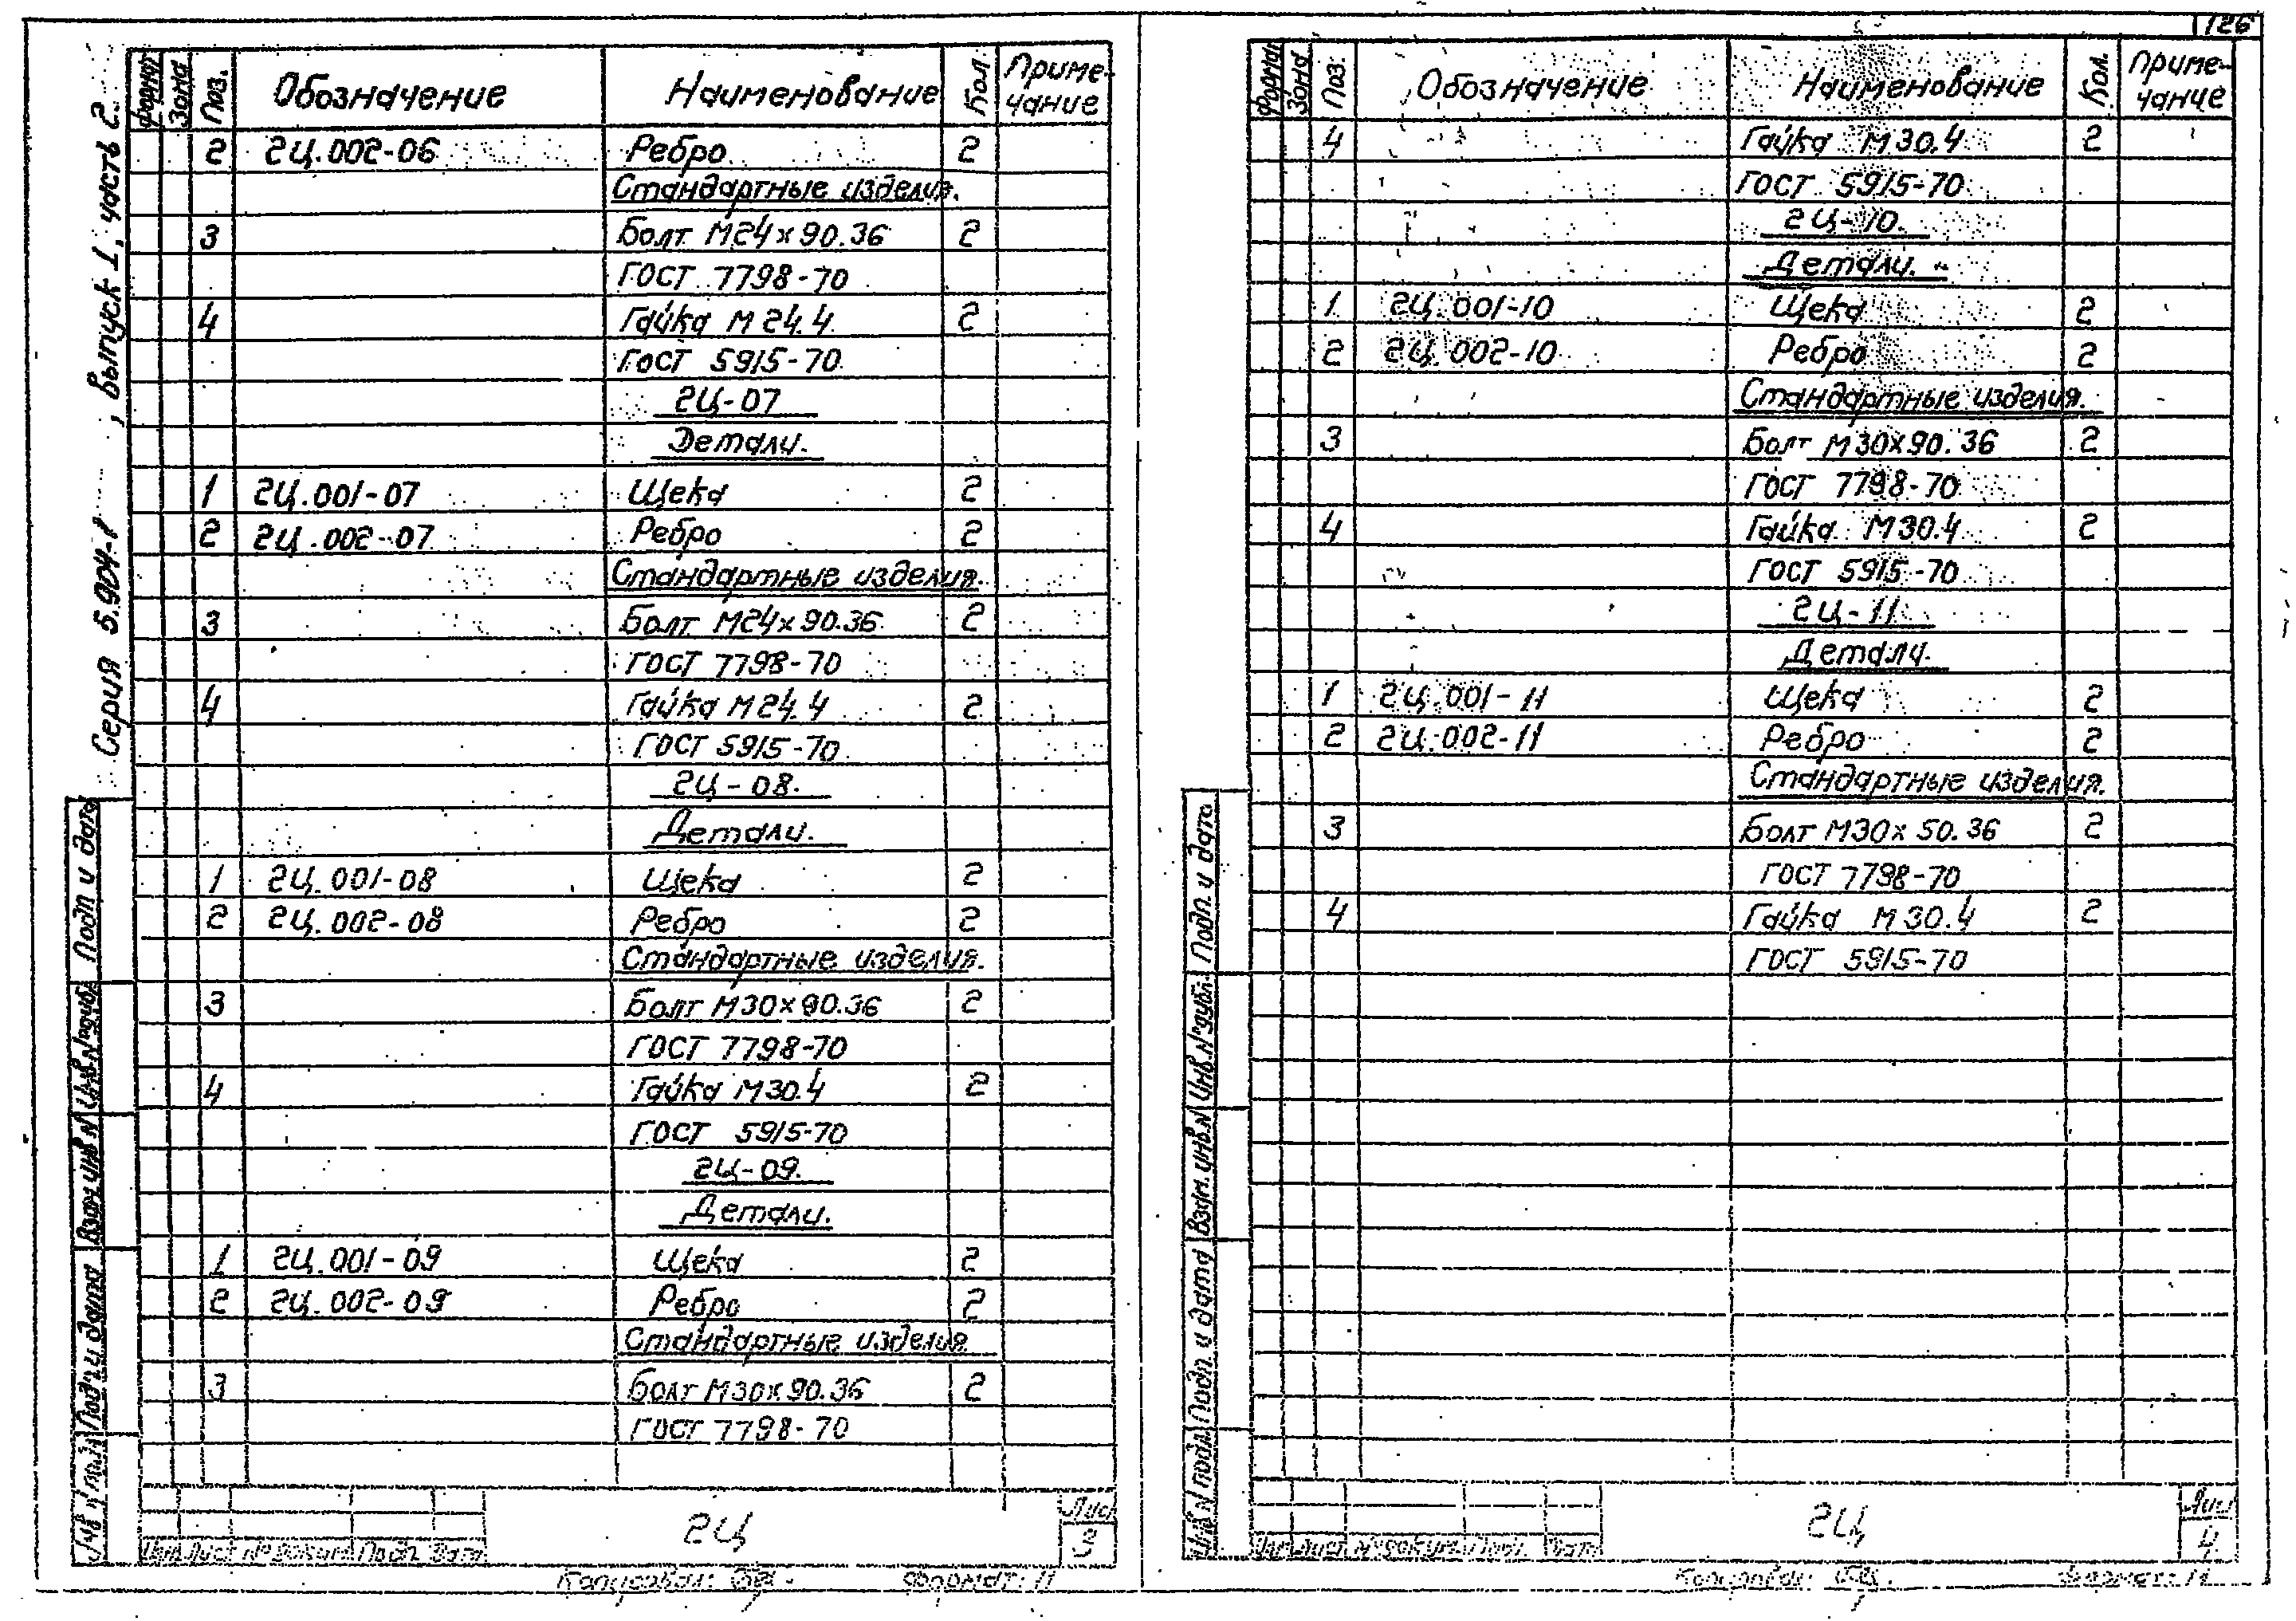 126
Серия 5.904-1 , выпуск 1, часть 2.
Формат Зона Поз. Обозначение Наименование Кол. Приме-
чание
2 2Ц.002-06 Ребро 2
Стандартные изделия.
3 Болт М24х90.36 2
ГОСТ 7798-70
4 Гайка М24.4 2
ГОСТ 5915-70
2Ц-07
Детали.
1 2Ц.001-07 Щека 2
2 2Ц.002-07 Ребро 2
Стандартные изделия.
3 Болт М24х90.36 2
ГОСТ 7798-70
4 Гайка М24.4 2
ГОСТ 5915-70
2Ц-08.
Детали.
1 2Ц.001-08 Щека 2
2 2Ц.002-08 Ребро 2
Стандартные изделия.
3 Болт М30х90.36 2
ГОСТ 7798-70
4 Гайка М30.4 2
ГОСТ 5915-70
2Ц-09.
Детали.
1 2Ц.001-09 Щека 2
2 2Ц.002-09 Ребро 2
Стандартные изделия
3 Болт М30х90.36 2
ГОСТ 7798-70
Подп и дата
Инв.№дубл.
Взам.инв№
Подп и дата
Инв № подл
Изм Лист № докум Подп. Дата
2Ц
Лист
3
Копировал: Формат: 11
Формат Зона Поз. Обозначение Наименование Кол. Приме-
чание
4 Гайка М30.4 2
ГОСТ 5915-70
2Ц-10.
Детали.
1 2Ц.001-10 Щека 2
2 2Ц.002-10 Ребро 2
Стандартные изделия.
3 Болт М30х90.36 2
ГОСТ 7798-70
4 Гайка М30.4 2
ГОСТ 5915-70
2Ц-11
Детали.
1 2Ц.001-11 Щека 2
2 2Ц.002-11 Ребро 2
Стандартные изделия.
3 Болт М30х50.36 2
ГОСТ 7798-70
4 Гайка М30.4 2
ГОСТ 5915-70
Подп. и дата
Инв.№дубл.
Взам.инв.№
Подп. и дата
Инв № подл
Изм Лист № докум. Подп. Дата
2Ц
Лист
4
Копировал: Формат: 11